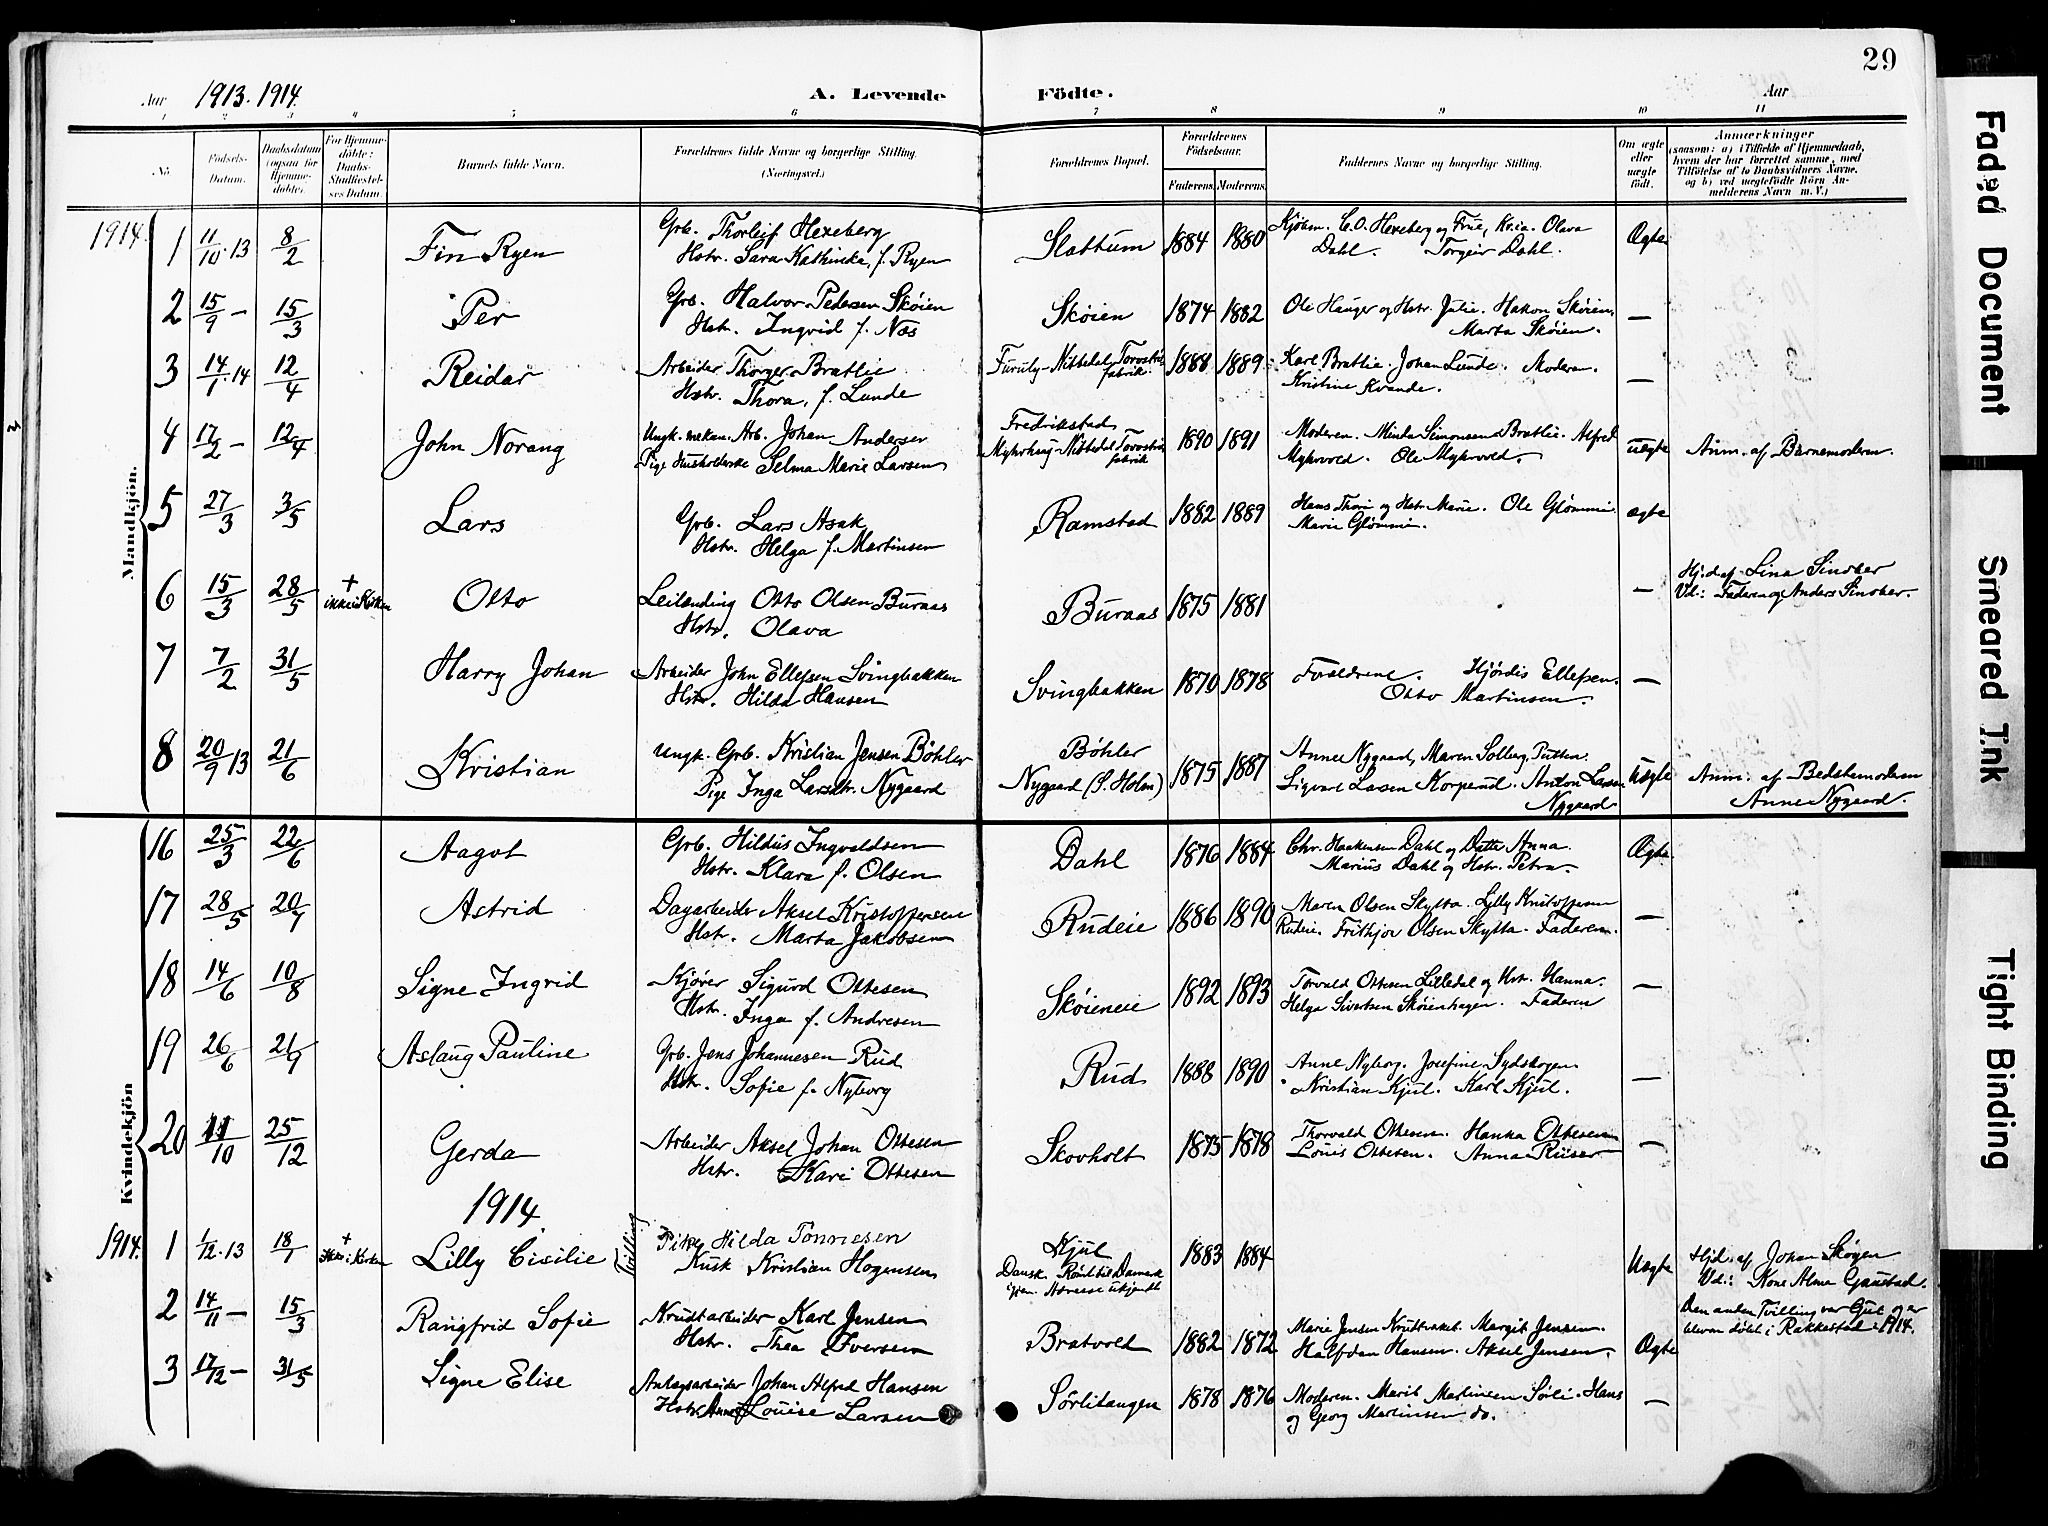 29
Aar 1913. 1914. A. Levende Födte. Aar
1 2 3 4 5 6 7 8 9 10 11
No Födsels-Datum. Daabsdatum (ogsaa for Hjemmedöbte). For Hjemmedöbte: Daabs-Stadfæstelses Datum. Barnets fulde Navn. Forældrenes fulde Navne og borgerlige Stilling. (Næringsvei.) Forældrenes Bopæl. Forældrenes Födselsaar. Faderens. Moderens. Faddernes Navne og borgerlige Stilling. Om ægte eller uægte födt. Anmærkninger (saasom: a) i Tilfælde af Hjemmedaab, hvem der har forrettet samme, med Tilföielse af to Daabsvidners Navne. og b) ved uægtefödte Börn Anmelderens Navn m. V.)
Mandkjön.
1914. 1 11/10 13 8/2 Fin Ryen Grb. Thorleif Hexeberg Slattum 1884 1880 Kjöbm. C.O. Hexeberg og Frue, Olava Ægte
Hstr. Sara Kathinka, f. Ryen Dahl. Torgeir Dahl.
2 15/9 — 15/3 Per Grb. Halvor Pedersen Skøien Skøien 1874 1882 Ole Hauger og Hstr. Julie. Hakon Skøien. —
Hstr. Ingrid f. Næs Marta Skøien.
3 14/1 14 12/4 Reidar Arbeider Thorger Bratlie Furuly-Nittedal Torvströ 1888 1889 Karl Bratlie. Johan Lunde. Moderen. —
Hstr. Thora, f. Lunde fabrik. Kristine Kvande.
4 17/2 — 12/4 John Norang Ungk. mekan. Arb. Johan Andersen Fredrikstad 1890 1891 Moderen. Minda Simonsen Bratlie. Alfred uægte Anm. af Barnemoderen.
Pige Husholderske Selma Marie Larsen Nittedal Torvströ fabrik Myhrvold. Ole Myhrvold.
5 27/3 3/5 Lars Grb. Lars Asak Ramstad 1882 1889 Hans Thon og Hstr. Marie. Ole Glømmi. ægte
Hstr. Helga f. Martinsen Marie Glømmi.
6 15/3 28/5 + ikke i Kirken Otto Leilænding Otto Olsen Buraas Buraas 1875 1881 — Hj.d. af Lina Sinober
Hstr. Olava Vd.: Faderen og Anders Sinober.
7 7/2 31/5 Harry Johan Arbeider John Ellefsen Svingbakken Svingbakken 1870 1878 Forældrene. Hjørdis Ellefsen. —
Hstr. Hilda Hansen Otto Martinsen.
8 20/9 13 21/6 Kristian Ungk. Grb. Kristian Jensen Böhler Böhler 1875 1887 Anne Nygaard, Maren Solberg Putten. Uægte Anm. af Bedstemoderen
Pige Inga Larsdtr. Nygaard Nygaard (S. Holm) Sigvart Larsen Korperud. Anton Larsen Nygaard Anne Nygaard.
Kvindekjön
16 25/3 22/6 Aagot Grb. Hildus Ingvaldsen Dahl 1876 1884 Chr. Haakensen Dahl og Datter Anna. Ægte
Hstr. Klara f. Olsen Marius Dahl og Hstr. Petra.
17 28/5 20/7 Astrid Dagarbeider Aksel Kristoffersen Rudeie 1886 1890 Maren Olsen Skytta. Lilly Kristoffersen —
Hstr. Marta Jakobsen Rudeie. Frithjov Olsen Skytta. Faderen.
18 14/6 10/8 Signe Ingrid Kjører Sigurd Ottesen Skøieneie 1892 1893 Torvald Ottesen Lilledal og Hstr. Hanna. —
Hstr. Inga f. Andresen Helga Sivertsen Skøienhagen. Faderen
19 26/6 21/9 Aslaug Pauline Grb. Jens Johannesen Rud Rud 1888 1890 Anne Nyborg. Josefine Sydskogen —
Hstr. Sofie f. Nyborg Kristian Kjul. Karl Kjul.
20 11/10 25/12 Gerda Arbeider Aksel Johan Ottesen Skovholt 1875 1878 Thorvald Ottesen. Hanna Ottesen —
Hstr. Kari Ottesen Louis Ottesen. Anna Riiser
1914.
1914. 1 1/12 13 18/1 + ikke i Kirken Lilly Cicilie Tvilling Pike Hilda Tönnesen Kjul 1883 1884 Uægte Hjd. af Johan Skogen
Kusk Kristian Hogensen Dansk. Rømt til Danmark Vd.: Kone Alma Gaustad.
ukjendt Den anden Tvilling var Gut og er
2 14/11 — 15/3 Rangfrid Sofie Krudtarbeider Karl Jensen Bratvold 1882 1872 Marie Jensen Krudtværket. Margit Jensen. Ægte bleven døbt i Rakkestad i 1914.
Hstr. Thea Iversen Halfdan Hansen. Aksel Jensen.
3 17/12 — 31/5 Signe Elise Anlægsarbeider Johan Alfred Hansen Sörlitangen 1878 1876 Moderen. Marit Martinsen Sørli. Hans —
Hstr. Anna Louise Larsen og Georg Martinsen do.
Faded Document
Smeared Ink
Tight Binding